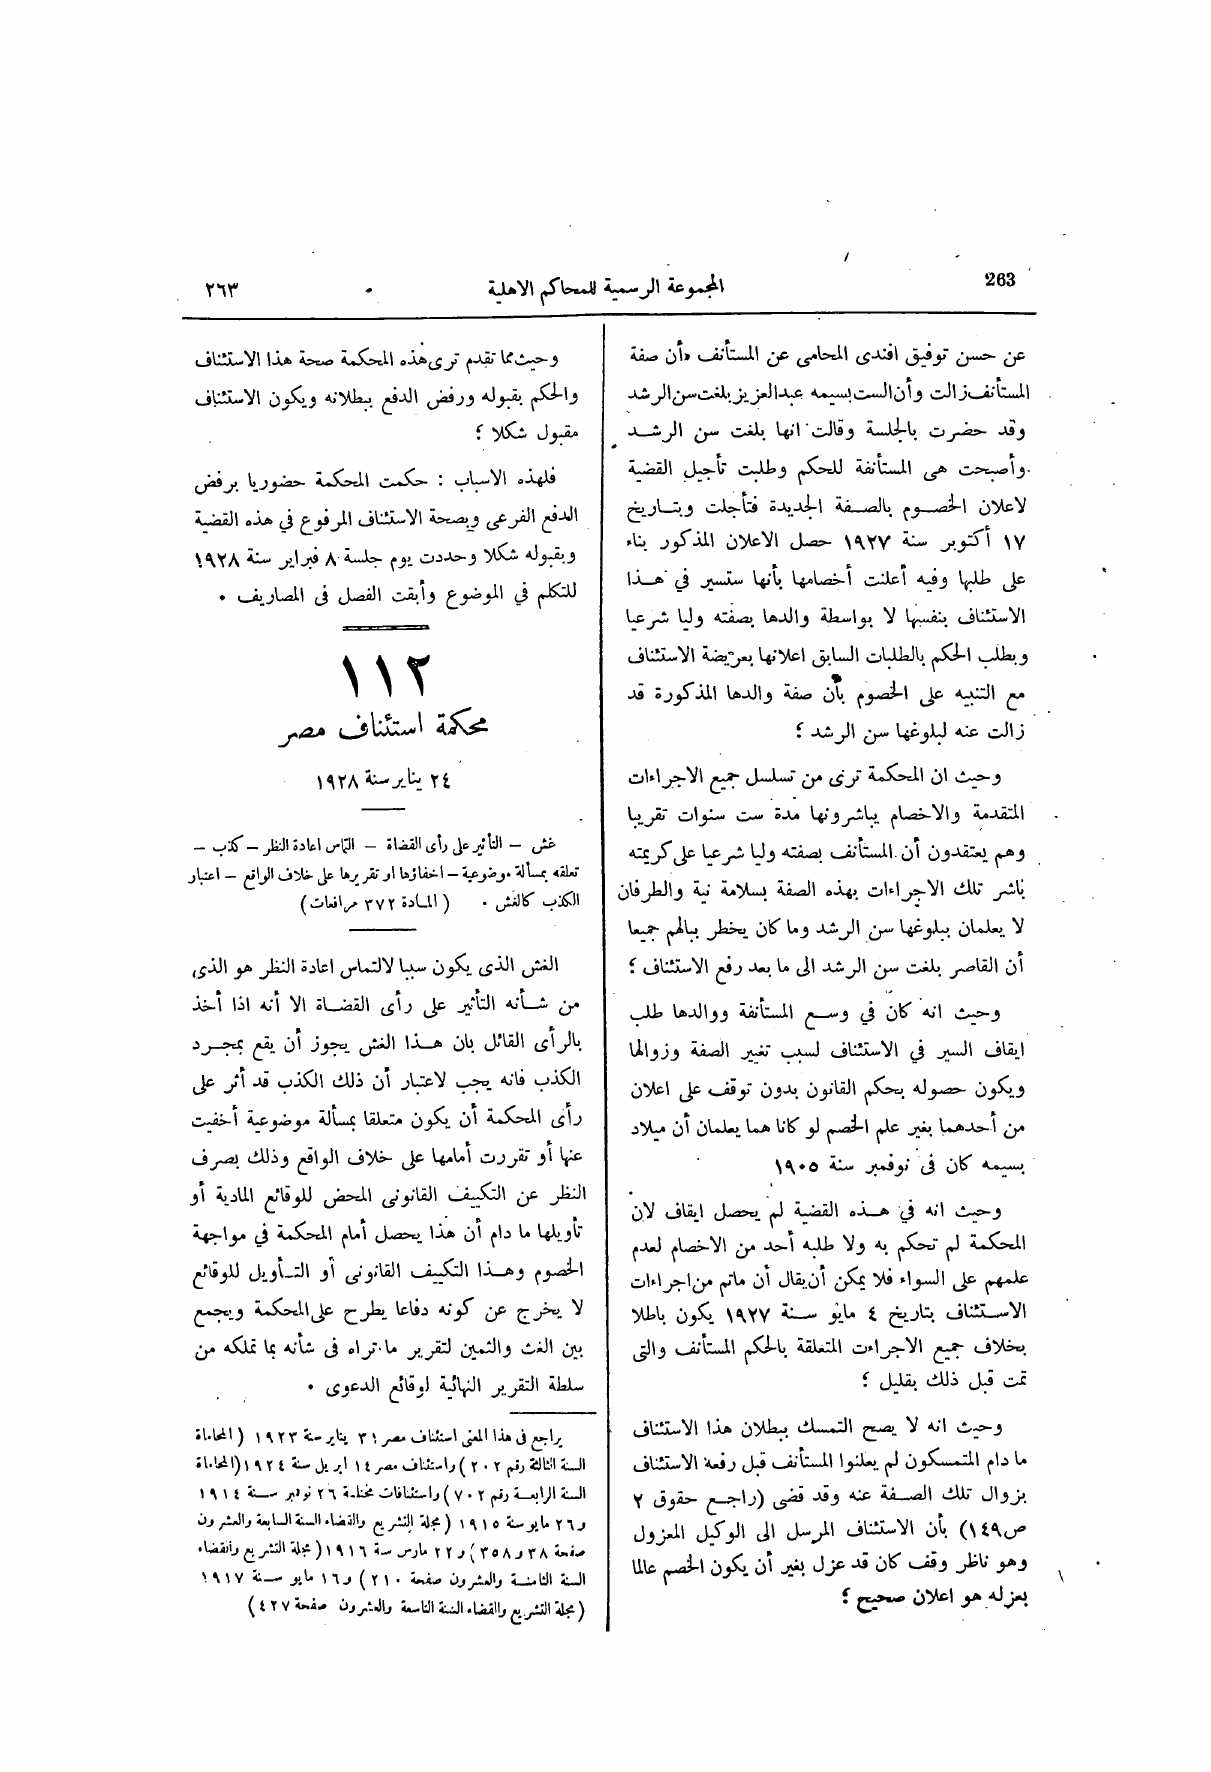 263
المجموعة الرسمية للمحاكم الاهلية
٢٦٣
عن حسن توفيق افندى المحامى عن المستأنف «أن صفة
المستأنف زالت وأن الست بسيمه عبدالعزيز بلغت سن الرشد
وقد حضرت بالجلسة وقالت انها بلغت سن الرشد
وأصبحت هى المستأنفة للحكم وطلبت تأجيل القضية
لاعلان الخصوم بالصفة الجديدة فتأجلت وبتاريخ
١٧ أكتوبر سنة ١٩٢٧ حصل الاعلان المذكور بناء
على طلبها وفيه أعلنت أخصامها بأنها ستسير في هذا
الاستئناف بنفسها لا بواسطة والدها بصفته وليا شرعيا
وبطلب الحكم بالطلبات السابق اعلانها بعريضة الاستئناف
مع التنبيه على الخصوم بأن صفة والدها المذكورة قد
زالت عنه لبلوغها سن الرشد ؛
وحيث ان المحكمة ترى من تسلسل جميع الاجراءات
المتقدمة والاخصام يباشرونها مدة ست سنوات تقريبا
وهم يعتقدون أن المستأنف بصفته وليا شرعيا على كريمته
باشر تلك الاجراءات بهذه الصفة بسلامة نية والطرفان
لا يعلمان ببلوغها سن الرشد وما كان يخطر ببالهم جميعا
أن القاصر بلغت سن الرشد الى ما بعد رفع الاستئناف ؛
وحيث انه كان في وسع المستأنفة ووالدها طلب
ايقاف السير في الاستئناف لسبب تغيير الصفة وزوالها
ويكون حصوله بحكم القانون بدون توقف على اعلان
من أحدهما بغير علم الخصم لو كانا هما يعلمان أن ميلاد
بسيمه كان فى نوفمبر سنة ١٩٠٥
وحيث انه في هذه القضية لم يحصل ايقاف لان
المحكمة لم تحكم به ولا طلبه أحد من الاخصام لعدم
علمهم على السواء فلا يمكن أن يقال أن ماتم من اجراءات
الاستئناف بتاريخ ٤ مايو سنة ١٩٢٧ يكون باطلا
بخلاف جميع الاجراءت المتعلقة بالحكم المستأنف والتى
تمت قبل ذلك بقليل ؛
وحيث انه لا يصح التمسك ببطلان هذا الاستئناف
ما دام المتمسكون لم يعلنوا المستأنف قبل رفعه الاستئناف
بزوال تلك الصفة عنه وقد قضى (راجع حقوق ٢
ص١٤٩) بأن الاستئناف المرسل الى الوكيل المعزول
وهو ناظر وقف كان قد عزل بغير أن يكون الخصم عالما
بعزله هو اعلان صحيح ؛
وحيث مما تقدم ترى هذه المحكمة صحة هذا الاستئناف
والحكم بقبوله ورفض الدفع ببطلانه ويكون الاستئناف
مقبول شكلا ؛
فلهذه الاسباب : حكمت المحكمة حضوريا برفض
الدفع الفرعى وبصحة الاستئناف المرفوع في هذه القضية
وبقبوله شكلا وحددت يوم جلسة ٨ فبراير سنة ١٩٢٨
للتكلم في الموضوع وأبقت الفصل فى المصاريف .
١١٢
محكمة استئناف مصر
٢٤ يناير سنة ١٩٢٨
غش – التأثير على رأى القضاة – التماس اعادة النظر – كذب –
تعلقه بمسألة موضوعية – اخفاؤها او تقريرها على خلاف الواقع – اعتبار
الكذب كالغش . ( المادة ٣٧٢ مرافعات )
الغش الذى يكون سببا لالتماس اعادة النظر هو الذى
من شأنه التأثير على رأى القضاة الا أنه اذا أخذ
بالرأى القائل بان هذا الغش يجوز أن يقع بمجرد
الكذب فانه يجب لاعتبار أن ذلك الكذب قد أثر على
رأى المحكمة أن يكون متعلقا بمسألة موضوعية أخفيت
عنها أو تقررت أمامها على خلاف الواقع وذلك بصرف
النظر عن التكييف القانونى المحض للوقائع المادية أو
تأويلها ما دام أن هذا يحصل أمام المحكمة في مواجهة
الخصوم وهذا التكييف القانونى أو التأويل للوقائع
لا يخرج عن كونه دفاعا يطرح على المحكمة ويجمع
بين الغث والثمين لتقرير ما تراه فى شأنه بما تملكه من
سلطة التقرير النهائية لوقائع الدعوى .
يراجع فى هذا المعنى استئناف مصر ٣١ يناير سنة ١٩٢٣ ( المحاماة
السنة الثالثة رقم ٢٠٢ ) واستئناف مصر ١٤ ابريل سنة ١٩٢٤ (المحاماة
السنة الرابعة رقم ٧٠٢ ) واستئنافات مختلطة ٢٦ نوفمبر سنة ١٩١٤
و٢٦ مايو سنة ١٩١٥ ( مجلة التشريع والقضاء السنة السابعة والعشرون
صفحة ٣٨ و٣٥٨ ) و٢٢ مارس سنة ١٩١٦ ( مجلة التشريع والقضاء
السنة الثامنة والعشرون صفحة ٢١٠ ) و١٦ مايو سنة ١٩١٧
( مجلة التشريع والقضاء السنة التاسعة والعشرون صفحة ٤٢٧ )